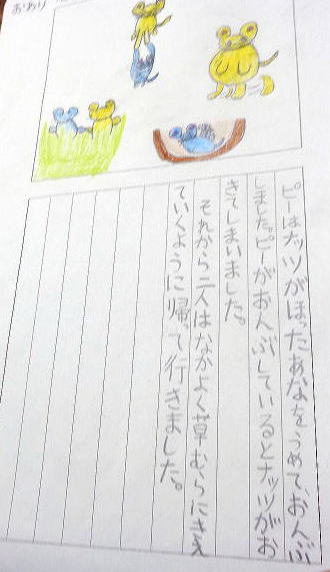 おわり
ピーはナッツがほったあなをうめて、おんぶ
しました。ピーがおんぶしているとナッツがお
きてしまいました。
それから二人はなかよく草むらにきえ
ていくように帰って行きました。